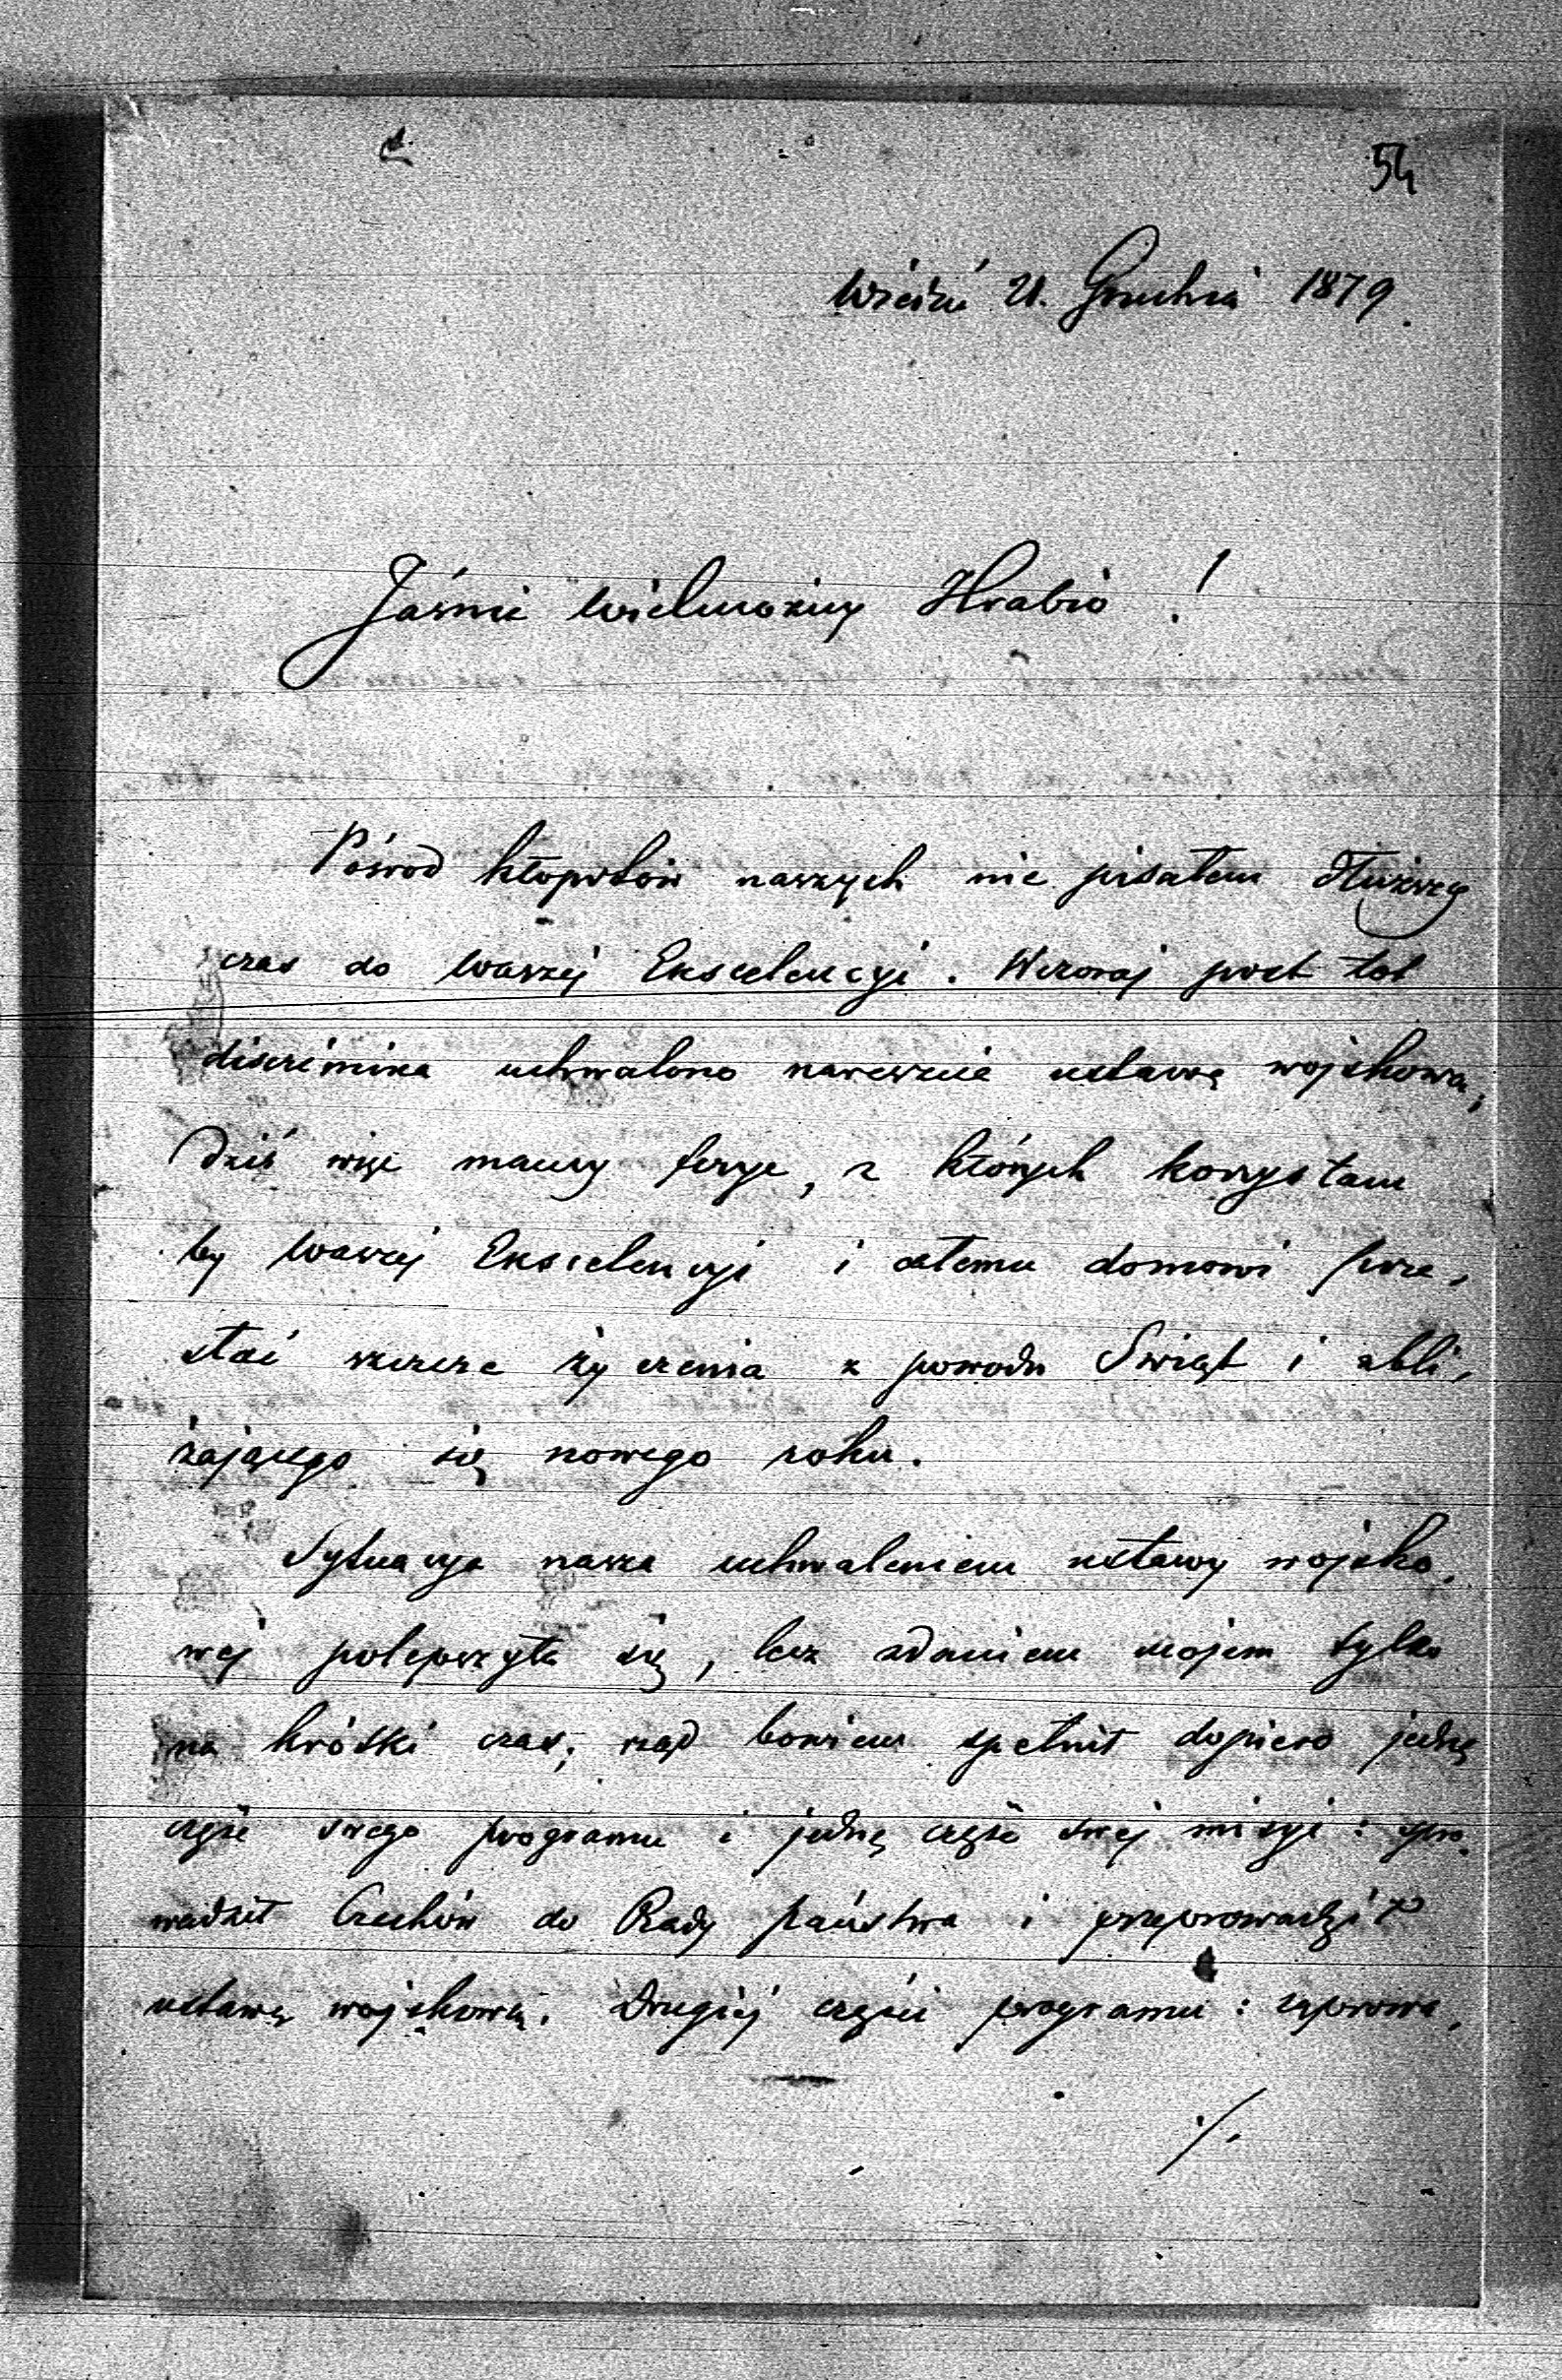 54
Wiedeń 21. Grudnia 1879.
Jaśnie Wielmożny Hrabio!
Pośród kłopotów naszych nie pisałem dłuższy
czas do Waszej Ekscelencyi. Wczoraj post tot
discrimina uchwalono nareszcie ustawę wojskową,
Dziś więc mamy ferye, z których korzystam
by Waszej Ekscelencyi i całemu domowi prze-
słać szczere życzenia z powodu Świąt i zbli-
żającego się nowego roku.
Sytuacya nasza uchwaleniem ustawy wojsko-
wej polepszyła się, lecz zdaniem mojem tylko
na krótki czas, rząd bowiem spełnił dopiero jedną
część swego programu i jedną część swej misyi: spro-
wadził Czechów do Rady państwa i przeprowadził
ustawę wojskową. Drugiej części programu: zaprowa-
./.